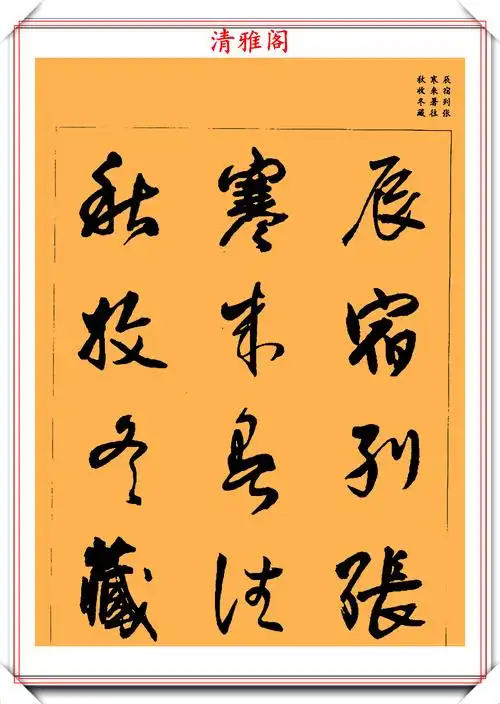 清雅阁
辰宿到张
寒来暑往
秋收冬藏
辰宿列張
寒来暑往
秋收冬藏